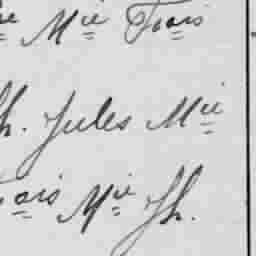 Mie Frois
Jh. Jules Mie
ois Mie Jh.